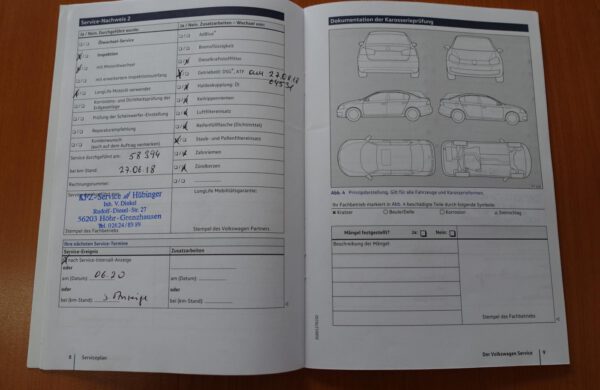 Service-Nachweis 2
Ja / Nein. Durchgeführt wurde:
Ölwechsel-Service
Inspektion
mit Motorölwechsel
mit erweitertem Inspektionsumfang
LongLife Motoröl verwendet
Korrosions- und Dichtheitsprüfung der Erdgasanlage
Prüfung der Scheinwerfer-Einstellung
Reparaturempfehlung
Kundenwunsch
(auch auf dem Auftrag vermerken)
Service durchgeführt am: 58 394
bei km-Stand: 27.06.18
Rechnungsnummer:
KFZ-Service Hübinger
Inh. V. Dinkel
Rudolf-Diesel-Str. 27
56203 Höhr-Grenzhausen
Tel. 02624/8989
Stempel des Fachbetriebs
Ja / Nein. Zusatzarbeiten – Wechsel von:
AdBlue®
Bremsflüssigkeit
Dieselkraftstofffilter
Getriebeöl: DSG®, ATF
27.09.18
Haldexkupplung: Öl
Keilrippenriemen
Luftfiltereinsatz
Reifenfüllflasche (Dichtmittel)
Staub- und Pollenfiltereinsatz
Zahnriemen
Zündkerzen
LongLife Mobilitätsgarantie:
Stempel des Volkswagen Partners
Ihre nächsten Service-Termine
Service-Ereignis
Zusatzarbeiten
nach Service-Intervall-Anzeige
oder
am (Datum): 06.20
am (Datum):
oder
oder
bei (km-Stand): > Anzeige
bei (km-Stand):
8 Serviceplan
Dokumentation der Karosserieprüfung
Abb. 4 Prinzipdarstellung. Gilt für alle Fahrzeuge und Karosserieformen.
Ihr Fachbetrieb markiert in Abb. 4 beschädigte Teile durch folgende Symbole:
Kratzer
Beule/Delle
Korrosion
Steinschlag
Mängel festgestellt?
Ja:
Nein:
Beschreibung der Mängel:
Stempel des Fachbetriebs
Der Volkswagen Service 9